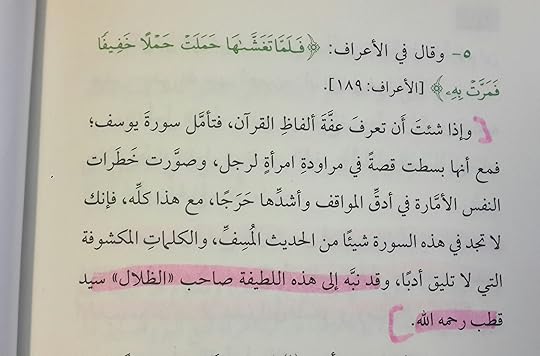 ٥- وقال في الأعراف: ﴿فَلَمَّا تَغَشَّىٰهَا حَمَلَتْ حَمْلًا خَفِيفًا
فَمَرَّتْ بِهِۦ﴾ [الأعراف: ١٨٩].
[وإذا شئتَ أن تعرفَ عفَّةَ ألفاظِ القرآن، فتأمَّل سورةَ يوسف؛
فمع أنها بسطت قصةً في مراودةِ امرأةٍ لرجل، وصوَّرت خَطَرات
النفس الأمَّارة في أدقِّ المواقف وأشدِّها حَرَجًا، مع هذا كلِّه، فإنك
لا تجد في هذه السورة شيئًا من الحديث المُسِفِّ، والكلماتِ المكشوفة
التي لا تليق أدبًا، وقد نبَّه إلى هذه اللطيفة صاحب «الظلال» سيد
قطب رحمه الله.]